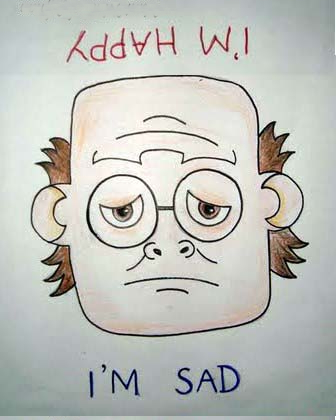 I'M HAPPY
I'M SAD